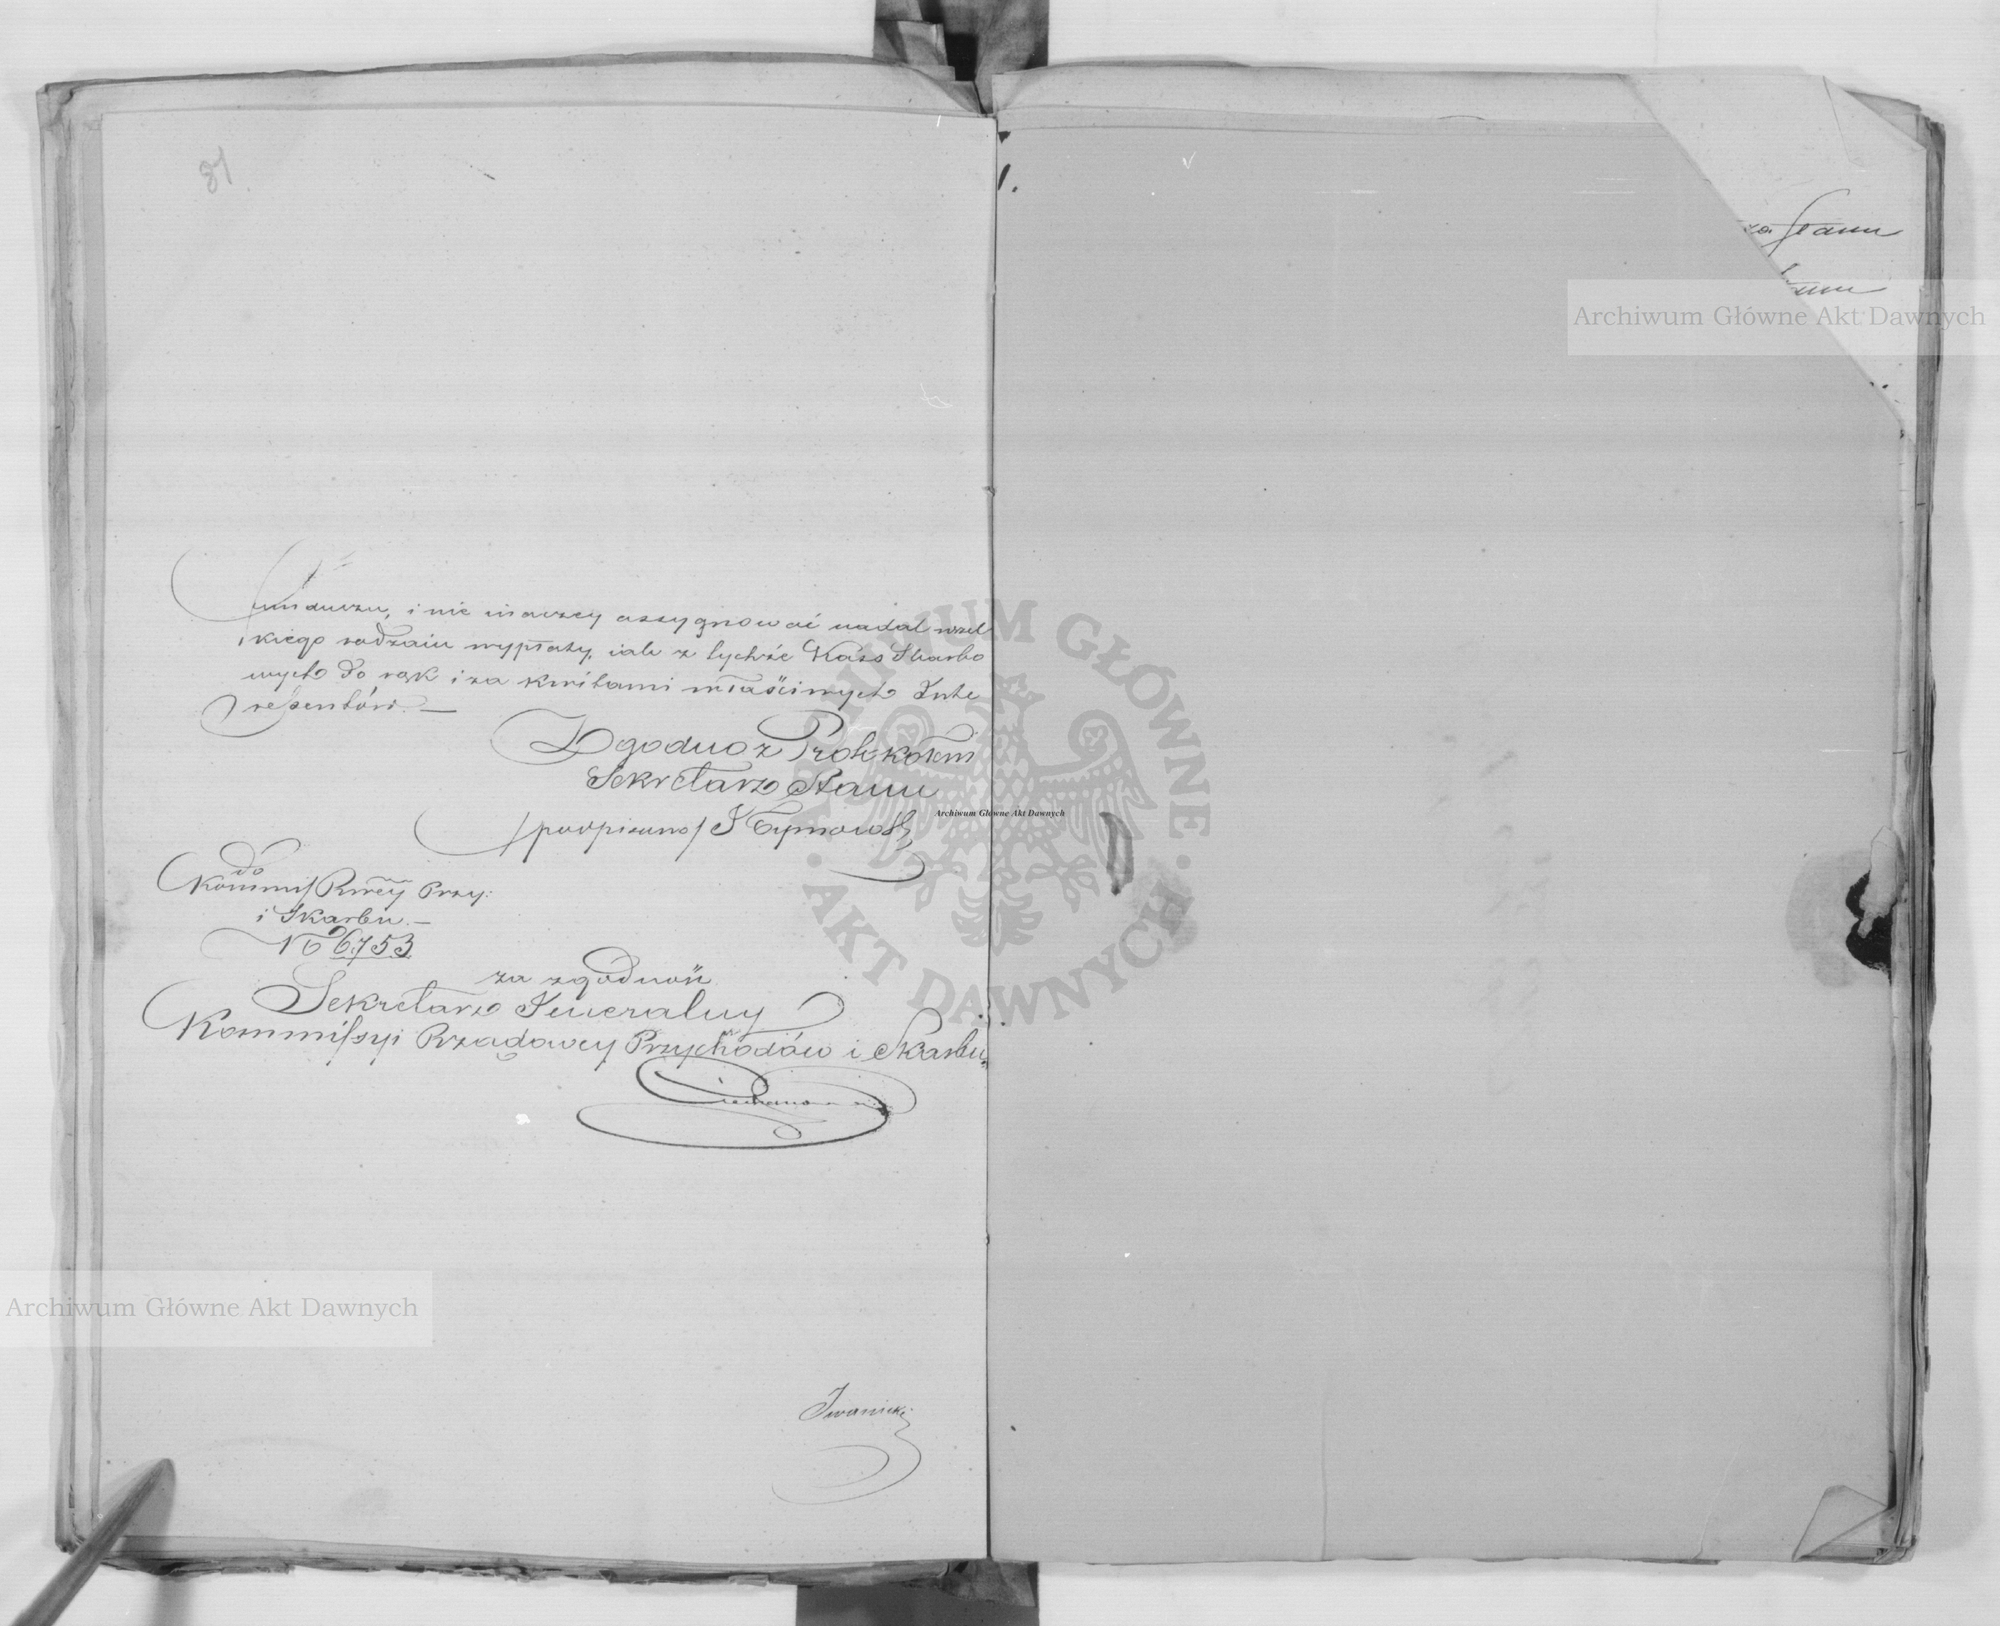 81
Funduszu, i nie inaczey assygnować nadal wszel
kiego rodzaiu wypłaty, iak z tychże Kass Skarbo
wych do rąk i za kwitami właściwych Inte
ressentów. —
Zgodno z Protokółem
Sekretarz Stanu
/podpisano/ J Tymowski
do
Kommiss Rwéy Przy:
i Skarbu. —
No 6753
za zgodność
Sekretarz Jeneralny
Kommissyi Rządowey Przychodów i Skarbu
Iwanicki
Stanu
Archiwum Główne Akt Dawnych
Archiwum Główne Akt Dawnych
Archiwum Główne Akt Dawnych
ARCHIWUM GŁÓWNE AKT DAWNYCH